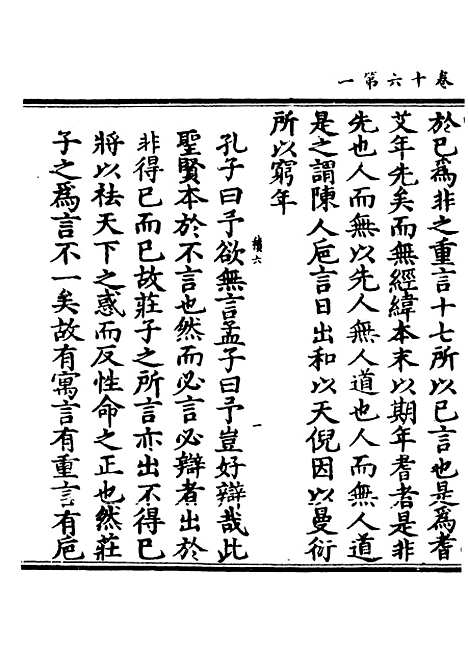 卷十六第一
於已爲非之重言十七所以已言也是爲耆
艾年先矣而無經緯本末以期年耆者是非
先也人而無以先人無人道也人而無人道
是之謂陳人巵言日出和以天倪因以曼衍
所以窮年
續六
一
孔子曰予欲無言孟子曰予豈好辯哉此
聖賢本於不言也然而必言必辯者出於
非得已而已故莊子之所言亦出不得已
將以祛天下之惑而反性命之正也然莊
子之爲言不一矣故有寓言有重言有巵